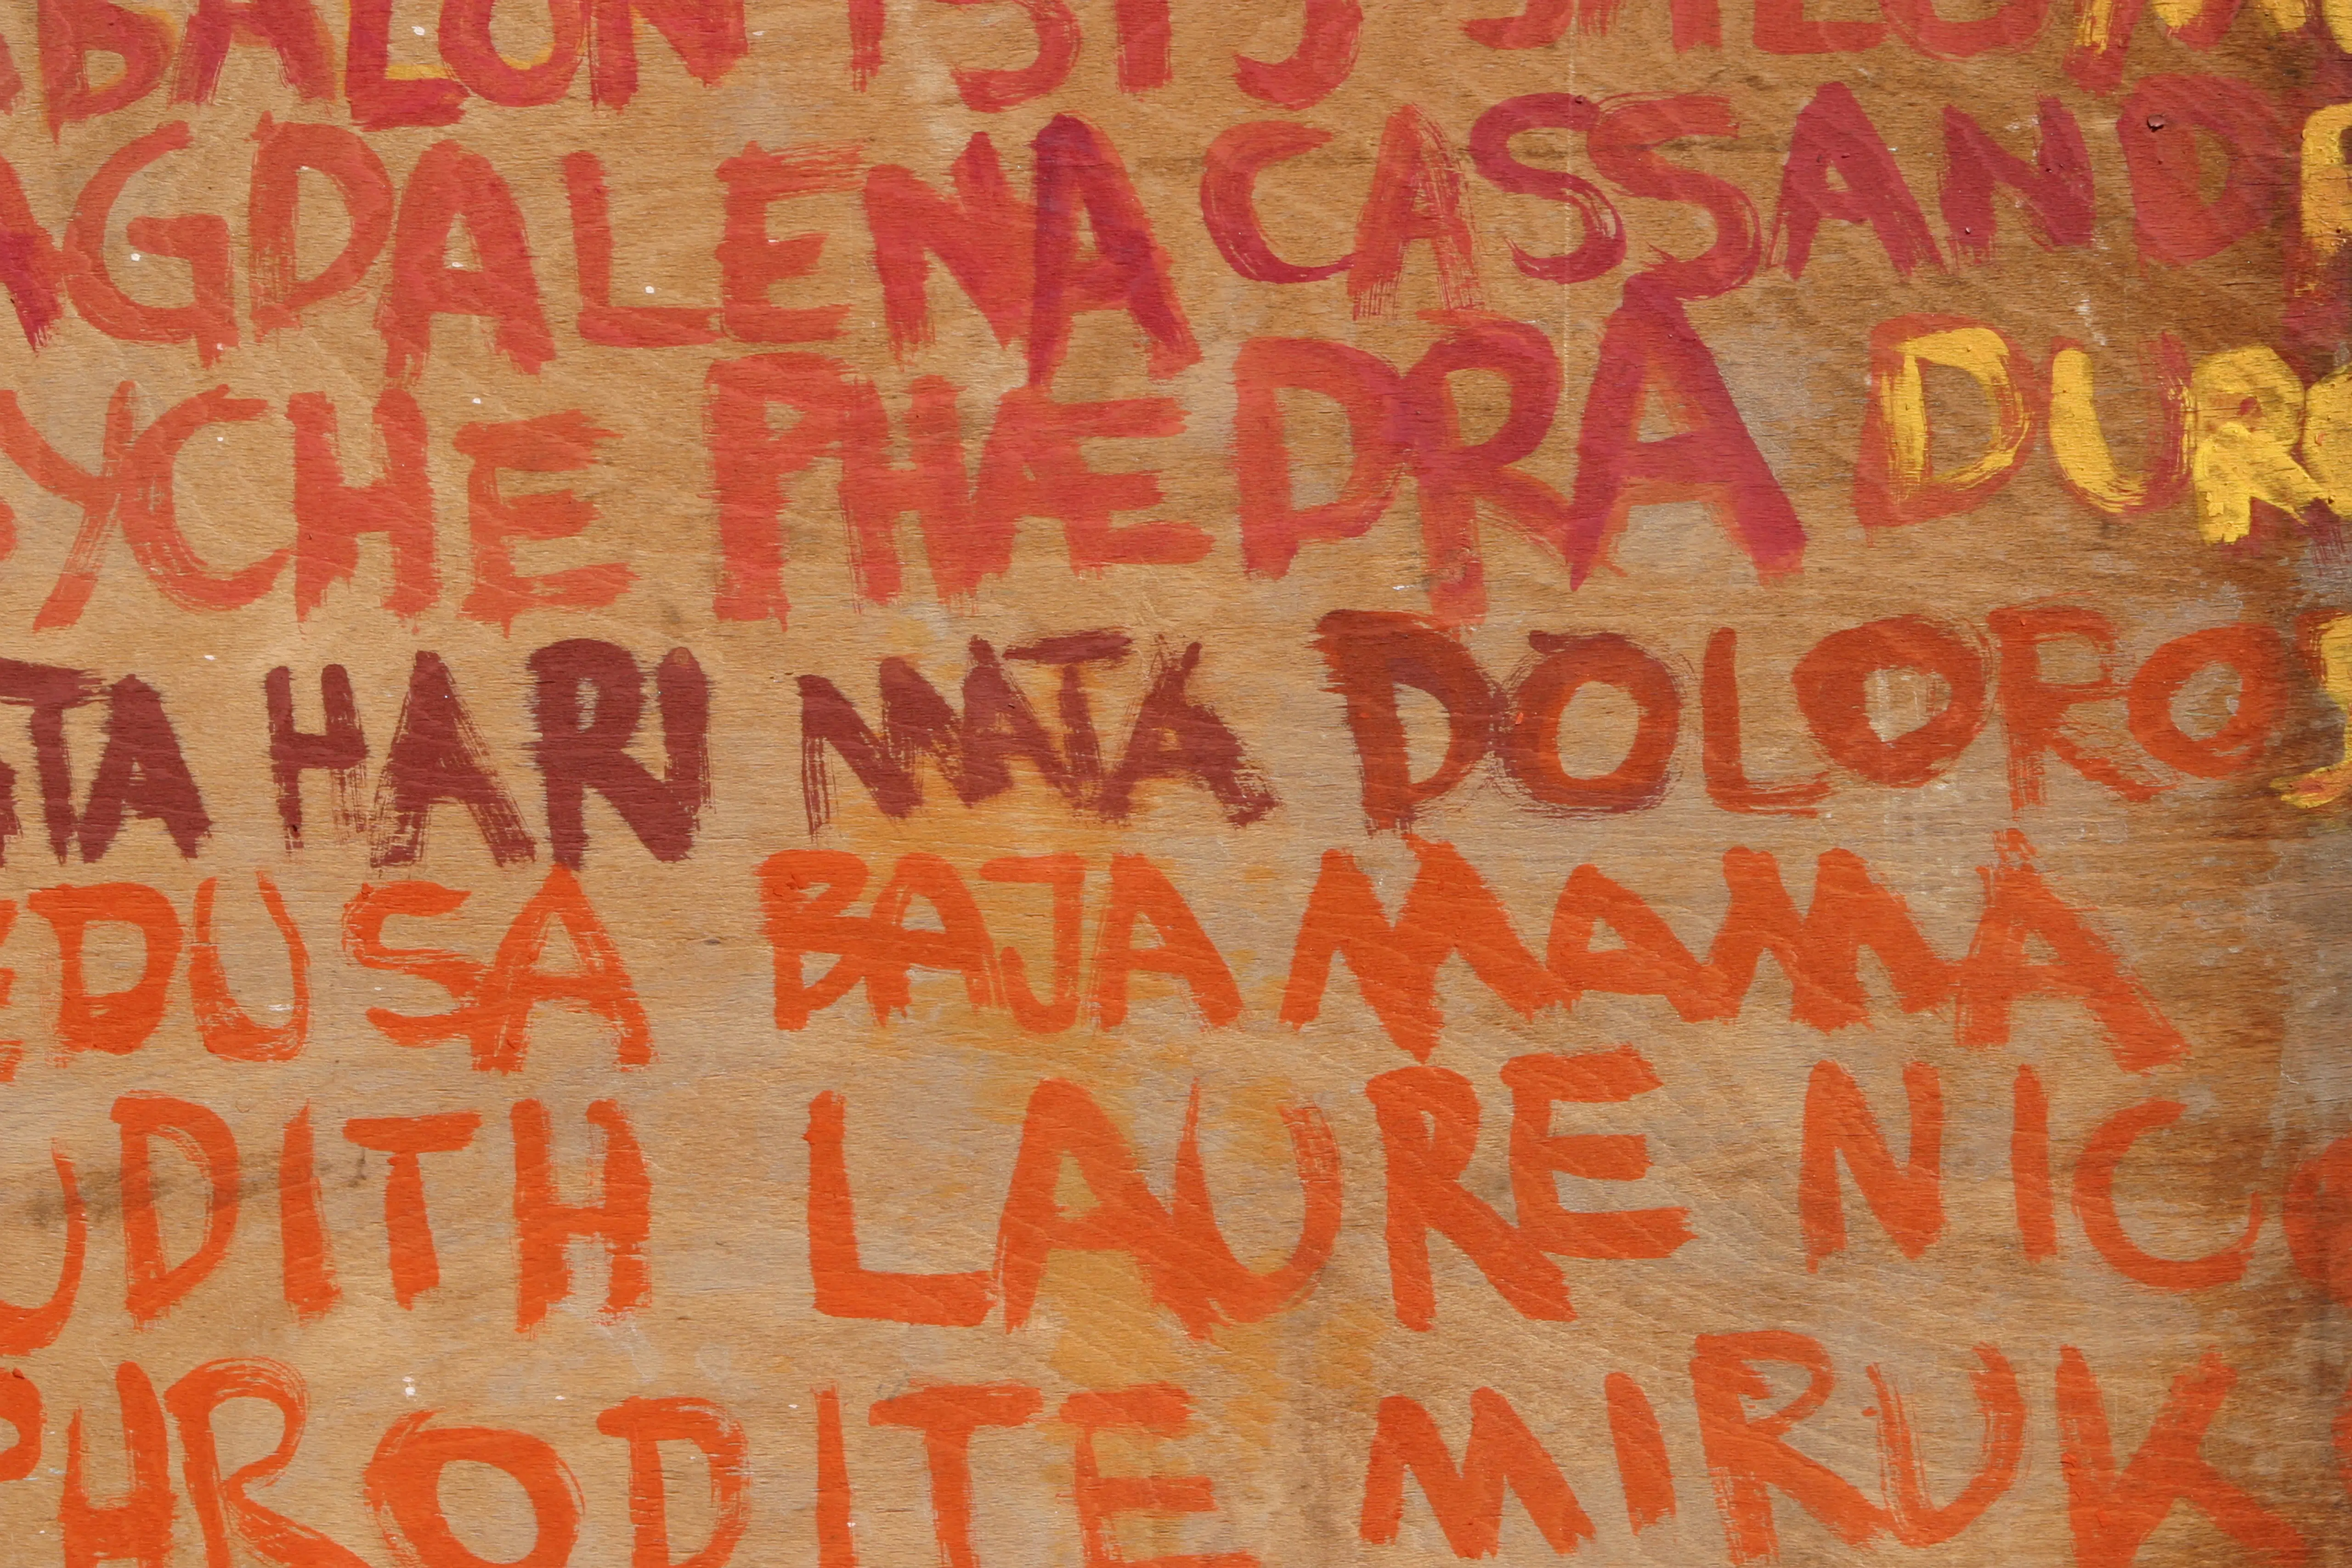 BALON ISIS SALOM
AGDALENA CASSANDR
SYCHE PHAEDRA DURG
ATA HARI MATA DOLOROS
EDUSA BAJA MAMA
UDITH LAURE NICO
PHRODITE MIRUK